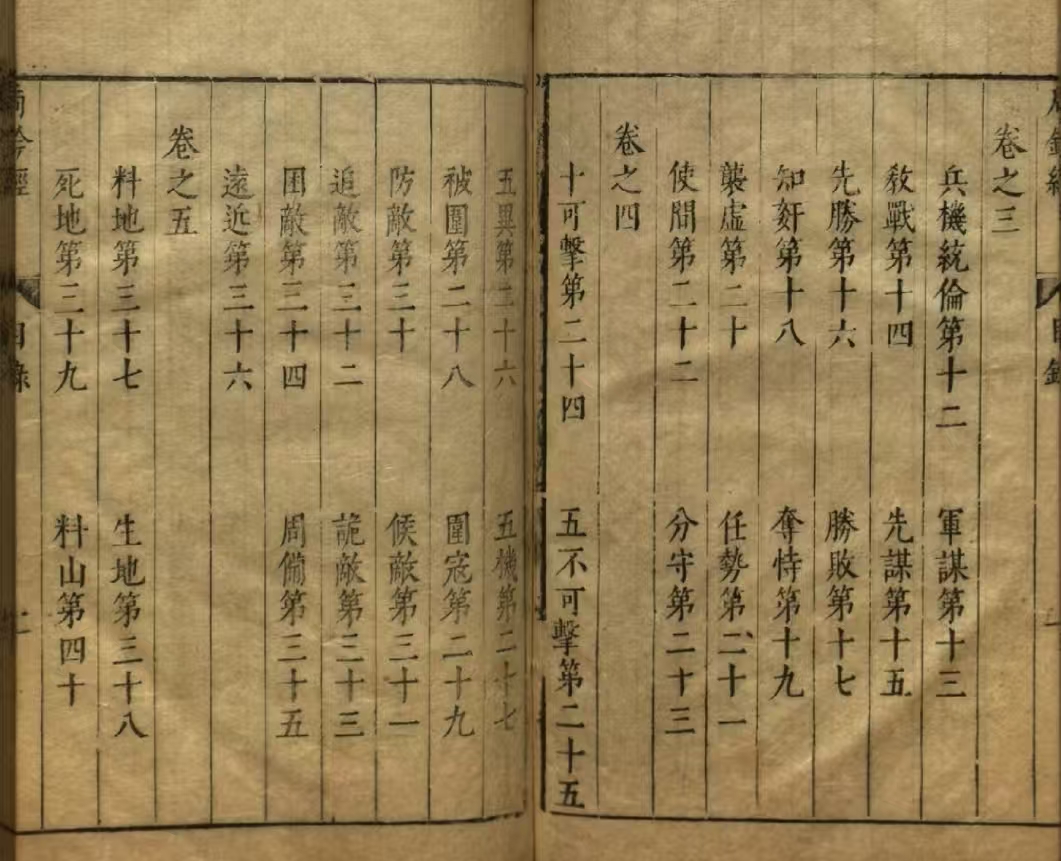 卷之三
兵機統倫第十二 軍謀第十三
教戰第十四 先謀第十五
先勝第十六 勝敗第十七
知奸第十八 奪恃第十九
襲虛第二十 任勢第二十一
使間第二十二 分守第二十三
卷之四
十可擊第二十四 五不可擊第二十五
五異第二十六 五機第二十七
被圍第二十八 圍寇第二十九
防敵第三十 候敵第三十一
追敵第三十二 詭敵第三十三
困敵第三十四 周備第三十五
遠近第三十六
卷之五
料地第三十七 生地第三十八
死地第三十九 料山第四十